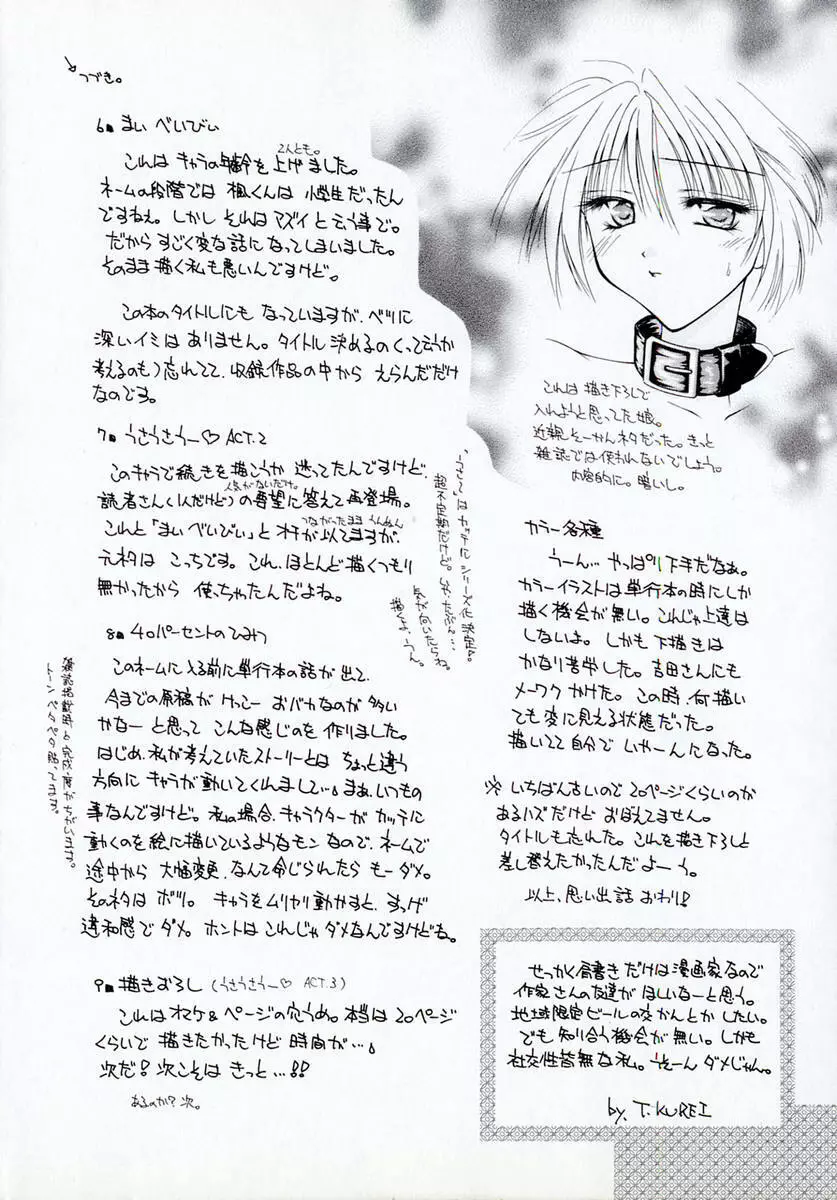 つづき。
6■ まい べいびい
これは キャラの年齢を上げました。
2人とも。
ネームの段階では 楓くんは 小学生だったん
ですねぇ。しかし それは マズイ と云う事で。
だから すごく変な話に なってしまいました。
そのまま描く私も悪いんですけど。
この本のタイトルにも なっていますが、べつに
深いイミは ありません。タイトル決めるの(くって云うか
考えるのも)忘れてて、収録作品の中から えらんだだけ
なのです。
7■ うさうさうー♡ ACT.2
このキャラで続きを描こうか 迷ってたんですけど、
人気がないだけ。
読者さん(1人だけど)の要望に答えて 再登場。
これと「まい べいびい」と オチが似てますが、
つながったまま うんぬん
元ネタは こっちです。これ、ほとんど描くつもり
無かったから 使っちゃたんだよね。
超不定期だけど。
気が向いたらね。
8■ 40パーセントのひまわり
このネームに入る前に単行本の話が出て、
今までの原稿が けっこー おバカなのが 多い
かなー と思って こんな感じのを 作りました。
はじめ、私が考えていたストーリーとは ちょっと違う
方向に キャラが動いてくれまして…。まぁ、いつもの
事なんですけど。私の場合、キャラクターが カッテに
動くのを絵に描いているようなモン なので、ネームで
途中から 大幅変更、なんて命じられたら もーダメ。
そのネタは ボツ。キャラを ムリヤリ 動かすと、すっげ
違和感で ダメ。ホントは これじゃ ダメなんですけどね。
雑誌掲載時と完成度がちがいます。
トーン ペタペタ貼ってます。
9■ 描きおろし (うさうさうー♡ ACT.3)
これはオマケ&ページの穴うめ。本当は 20ページ
くらいで 描きたかったけど 時間が…。
次だ! 次こそは きっと…!!
あるのか? 次。
これは 描き下ろしで
入れようと思ってた娘。
近親そーかんネタだった。きっと
雑誌では使われないでしょう。
内容的に。暗いし。
カラー各種
うーん… やっぱり下手だなぁ。
カラーイラストは単行本の時にしか
描く機会が無い。これじゃ上達は
しないよ。しかも 下描きは
かなり苦労した。吉田さんにも
メーワク かけた。この時、何描い
ても 変に見える状態だった。
描いてて 自分で いやーんになった。
※ いちばんさいので 20ページくらいのが
あるハズだけど おぼえてません。
タイトルも忘れた。これを描き下ろしと
差し替えたかったんだよーう。
以上、思い出話 おわり!
せっかく肩書きだけは漫画家なので
作家さんの友達が ほしいなーと思う。
地域限定ビールの交かんとか したい。
でも 知り合う機会が無い。しかも
社交性皆無な私。うそーん ダメじゃん。
by. T.KUREI